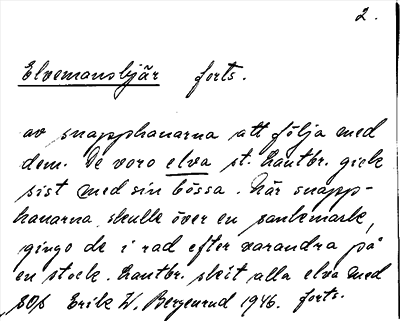 2.
Elvemansbjär forts.
av snapphanarna att följa med
dem. De voro elva st. Lantbr. gick
sist med sin bössa. När snapp-
hanarna skulle över en sankmark,
gingo de i rad efter varandra på
en stock. Lantbr. sköt alla elva med
sos Erik W. Bergenrud 1946. forts.